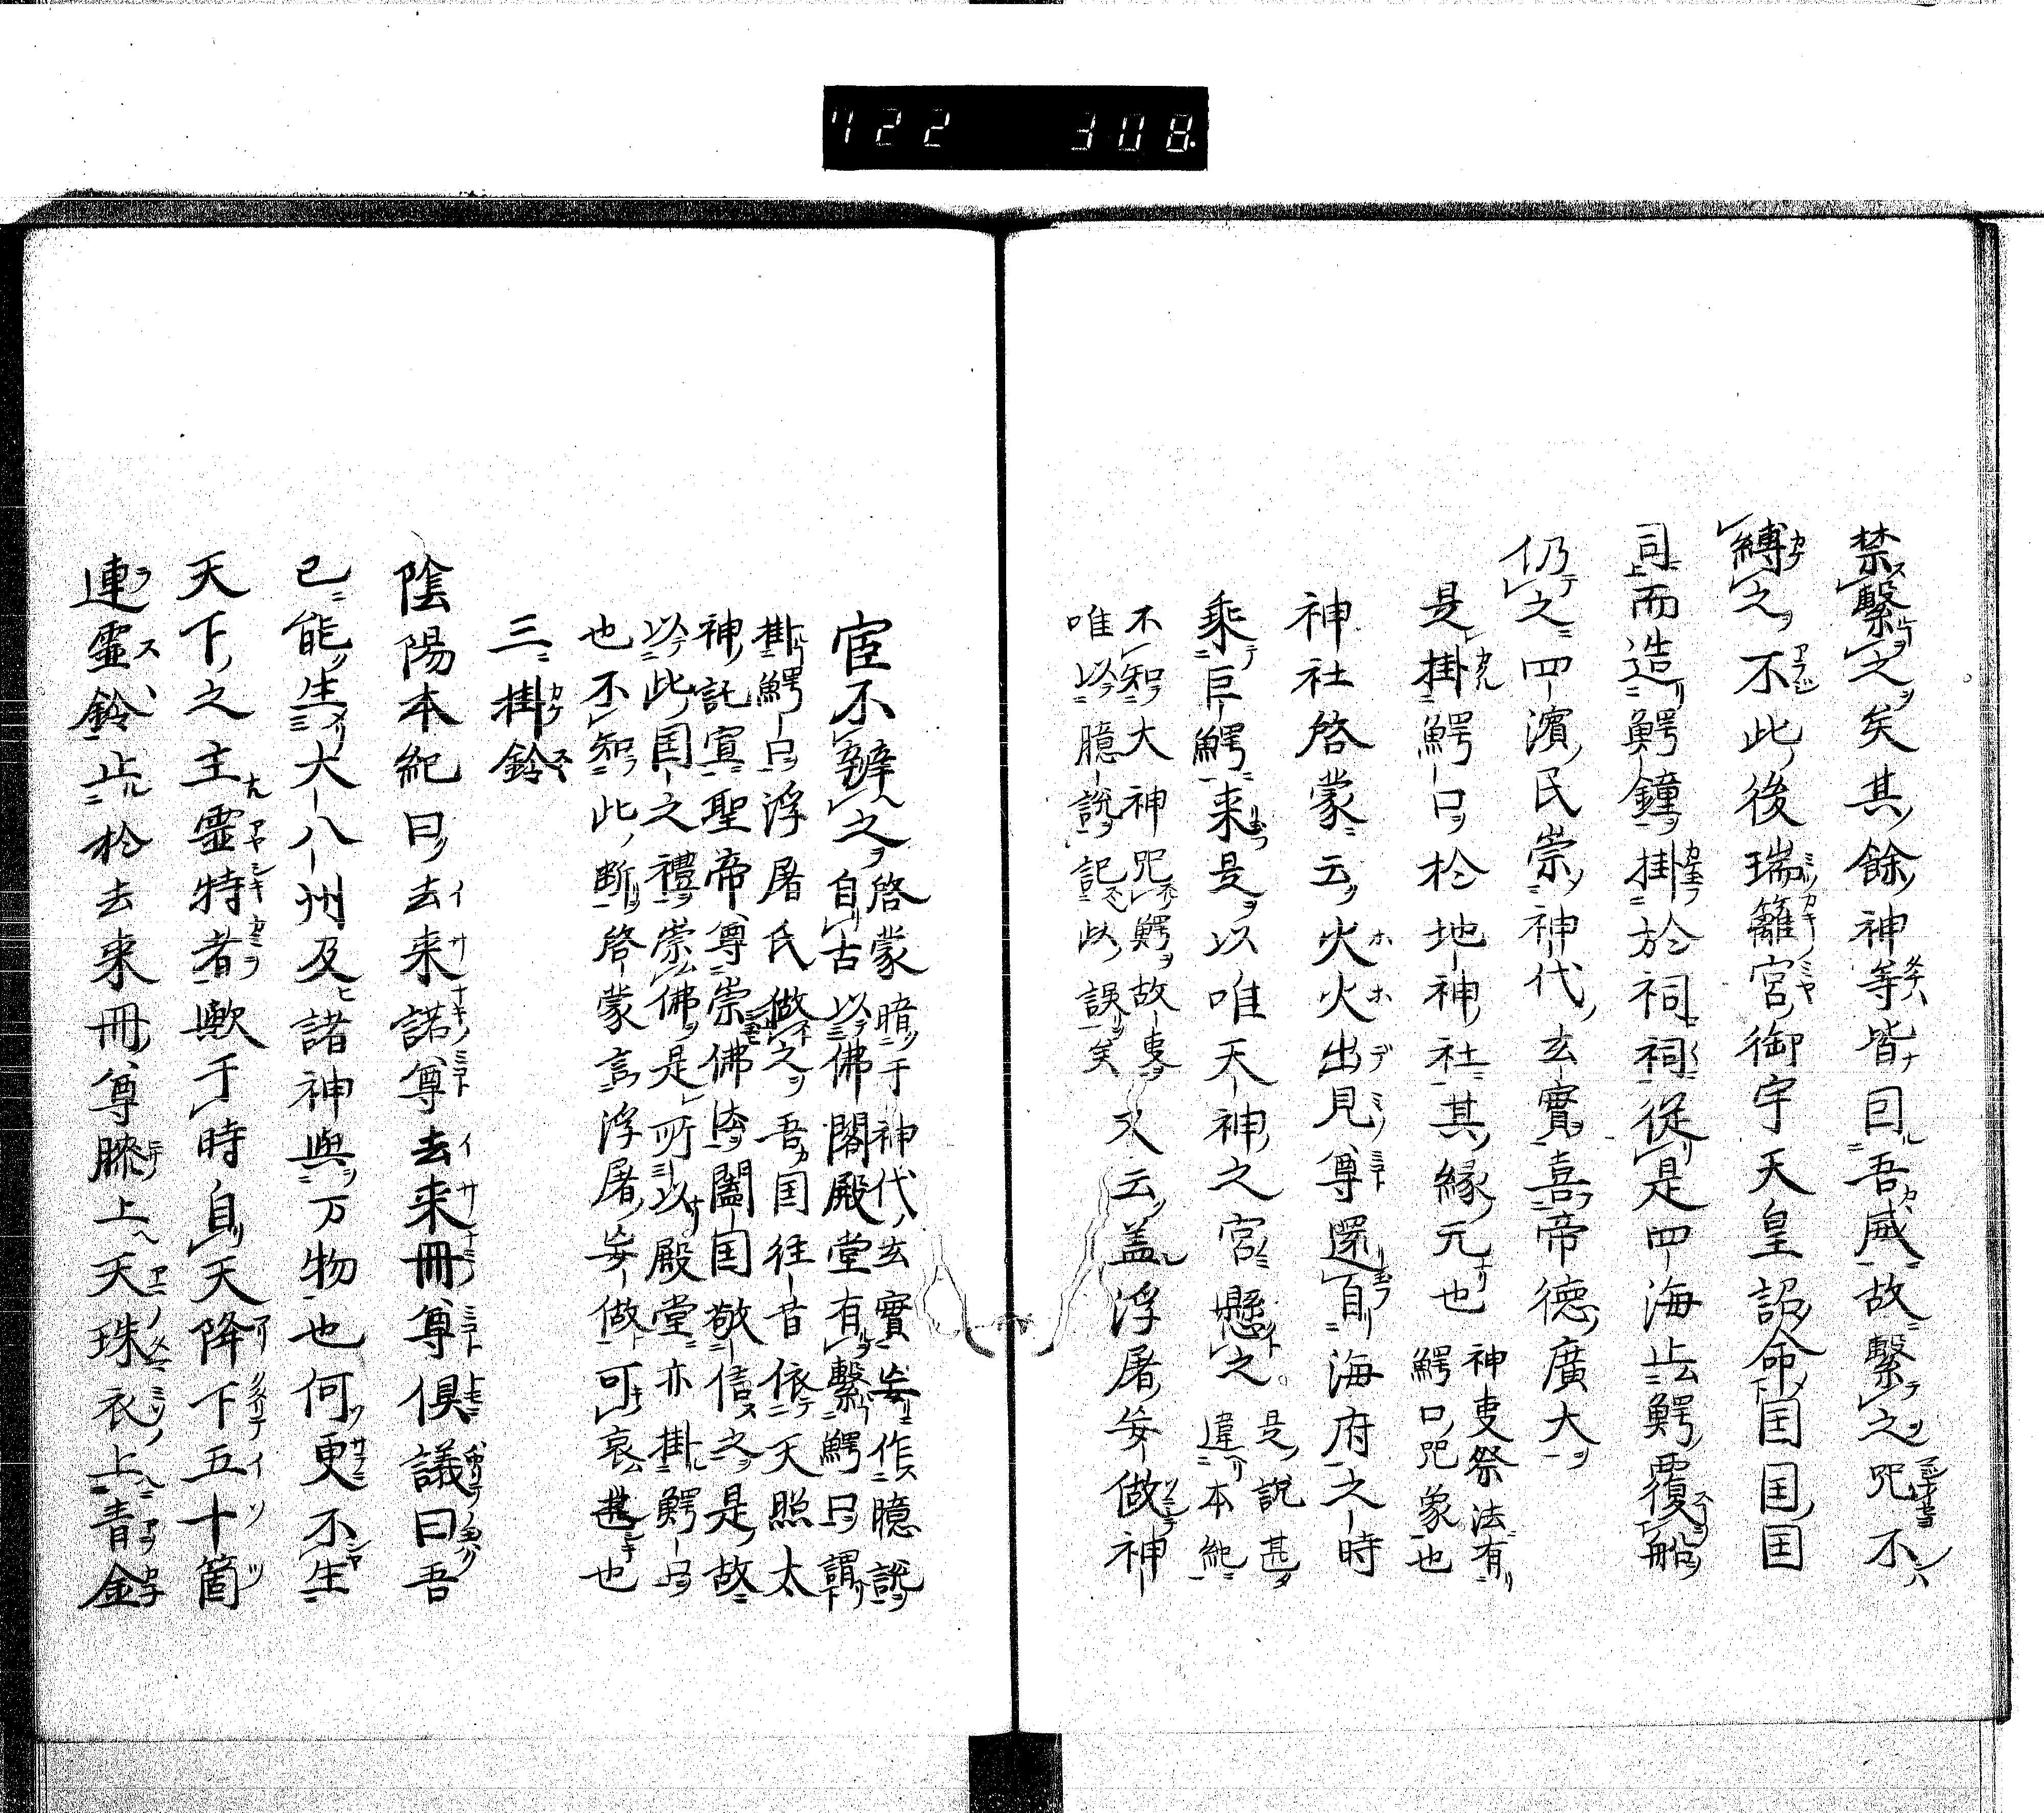 722 308
禁繫之矣其餘神等皆曰吾威故繫之咒不
縛之不此後瑞籬宮御宇天皇詔命囯囯囯
司而造鰐鐘掛於祠祠從是四海止鰐覆船
仍之四濱民崇神代玄實喜帝德廣大
是掛鰐口於地神社其緣元也
神叓祭法有
鰐口咒象也
神社啓蒙云火火出見尊還自海府之時
乘巨鰐来是以唯天神之宮懸之
是說甚
違本紀
不知大神咒鰐故叓
唯以臆說記此誤矣
又云盖浮屠妄做神
宦不辨之
啓蒙暗于神代玄實妄作臆說
自古以佛閣殿堂有繫鰐口謂
掛鰐口浮屠氏做之吾囯往昔依天照太
神託宣聖帝尊崇佛法闔囯敬信之是故
以此囯之禮崇佛是所以殿堂亦掛鰐口
也不知此断啓蒙言浮屠妄做可哀甚也
三掛鈴
陰陽本紀曰去来諾尊去来冊尊俱議曰吾
已能生大八州及諸神與万物也何更不生
天下之主靈特者歟于時自天降下五十箇
連靈鈴止於去来冊尊膝上天珠衣上青金